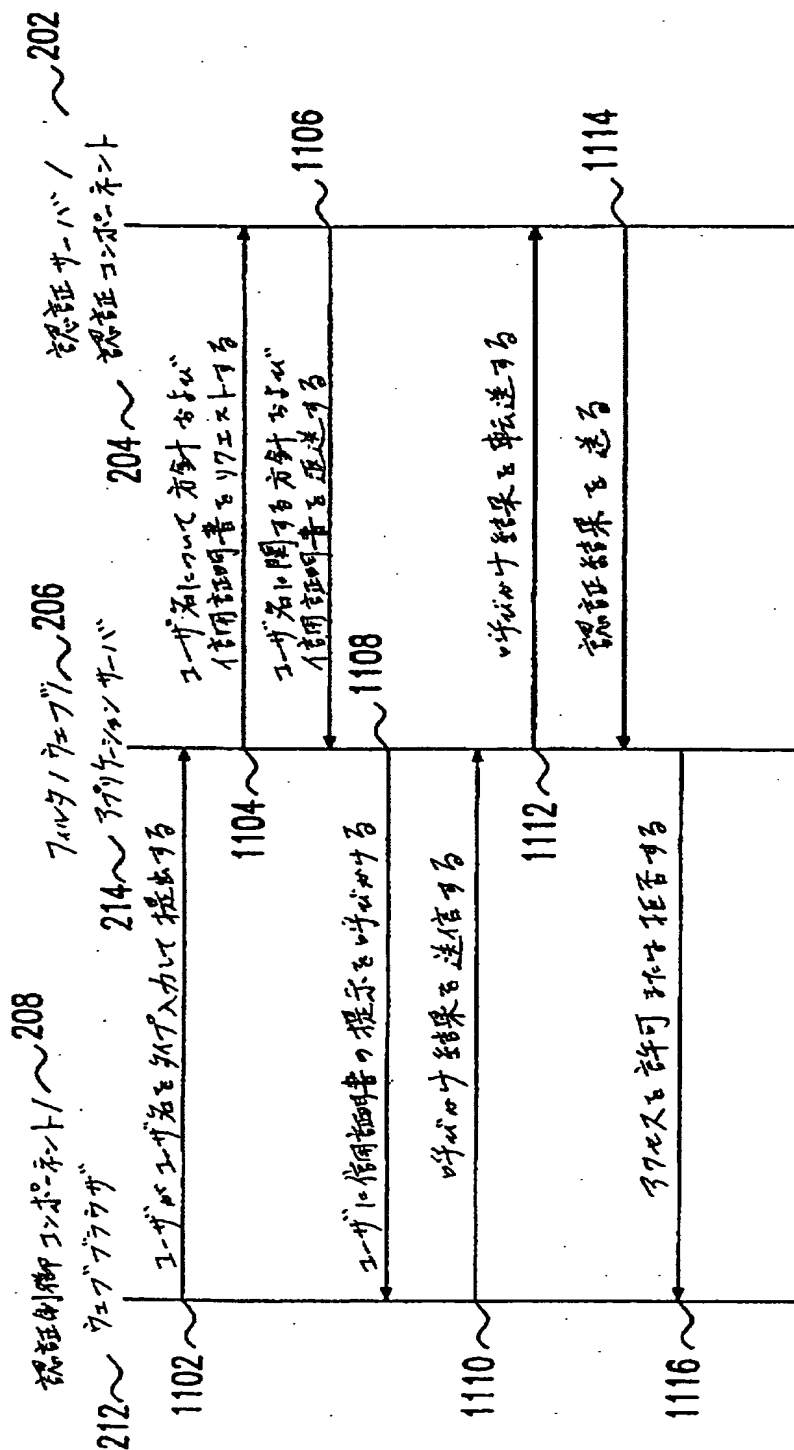 認証制御コンポーネント/ 208
212 ウェブブラウザ
フィルタ/ウェブ/ 206
214 アプリケーションサーバ
認証サーバ/ 202
204 認証コンポーネント
1102
ユーザがユーザ名をタイプ入力して提出する
1104
ユーザ名について方針および
信用証明書をリクエストする
1106
ユーザ名に関する方針および
信用証明書を返送する
1108
ユーザに信用証明書の提示を呼びかける
1110
呼びかけ結果を送信する
1112
呼びかけ結果を転送する
1114
認証結果を送る
1116
アクセスを許可または拒否する